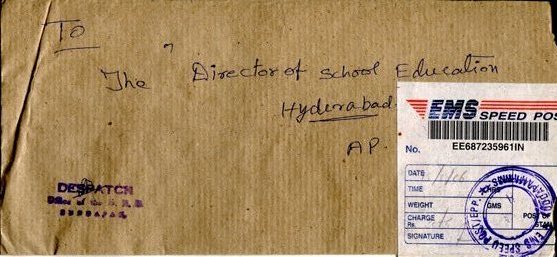 To
The Director of School Education
Hyderabad
AP.
DESPATCH
Office of the
EMS SPEED POS
EE687235961IN
No.
DATE
TIME
WEIGHT GMS
CHARGE
Rs.
POST
SIGNATURE
EMS SPEED POST